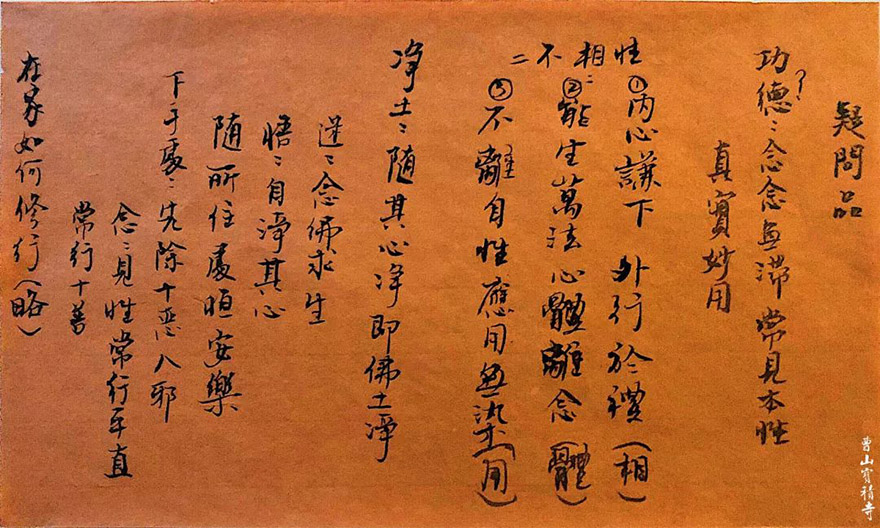 疑問品
功德：念念無滯 常見本性
真實妙用
性相不二：
①內心謙下 外行於禮（相）
②能生萬法 心體離念（體）
③不離自性 應用無染（用）
淨土：隨其心淨 即佛土淨
迷：念佛求生
悟：自淨其心
隨所住處恒安樂
下手處：先除十惡八邪
念念見性 常行平直
常行十善
在家如何修行（略）
曹山寶積寺